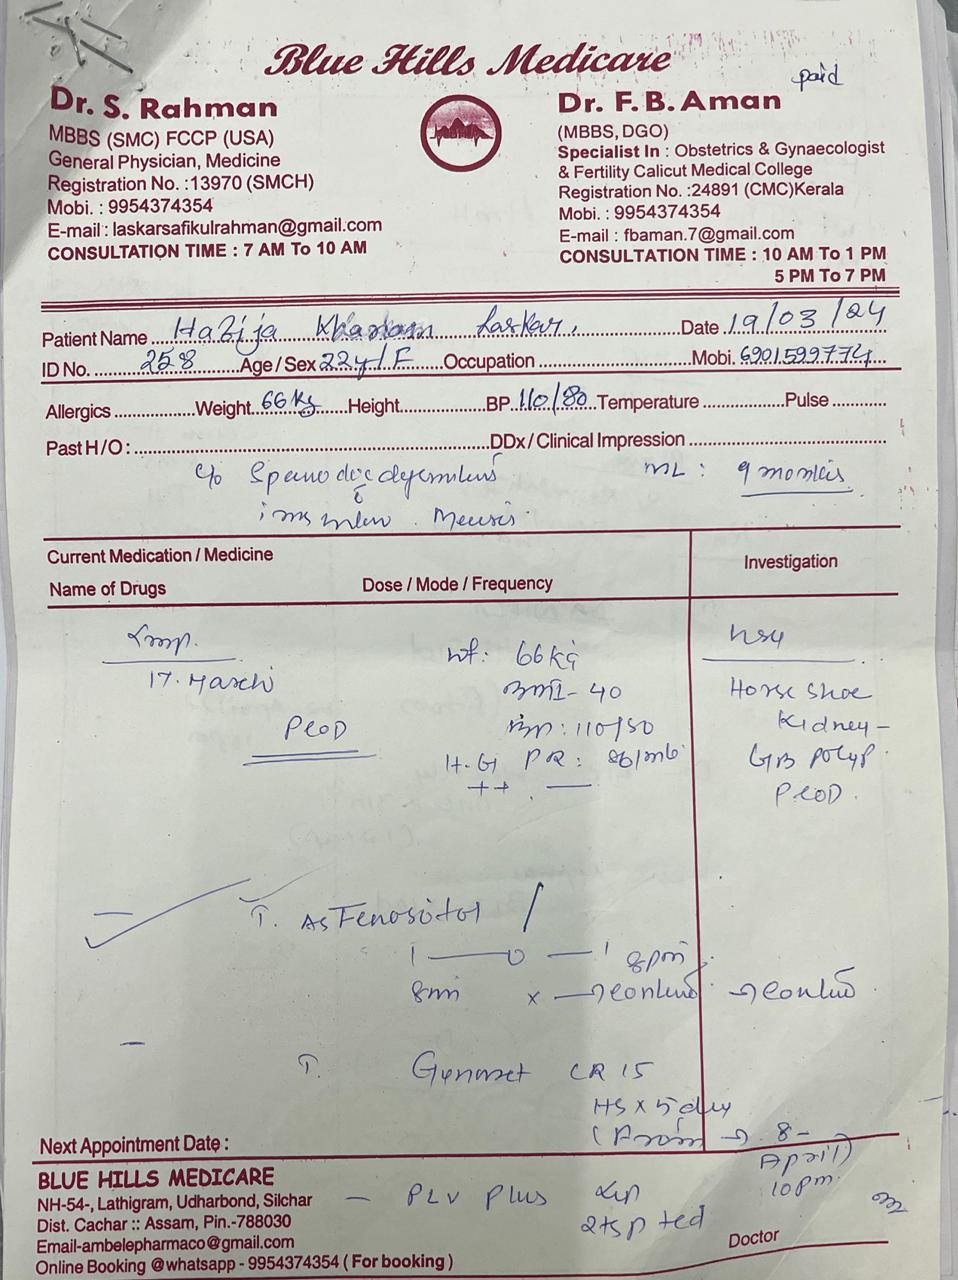 Blue Hills Medicare
paid
Dr. S. Rahman
MBBS (SMC) FCCP (USA)
General Physician, Medicine
Registration No. :13970 (SMCH)
Mobi. : 9954374354
E-mail : laskarsafikulrahman@gmail.com
CONSULTATION TIME : 7 AM To 10 AM
Dr. F. B. Aman
(MBBS, DGO)
Specialist In : Obstetrics & Gynaecologist
& Fertility Calicut Medical College
Registration No. :24891 (CMC)Kerala
Mobi. : 9954374354
E-mail : fbaman.7@gmail.com
CONSULTATION TIME : 10 AM To 1 PM
5 PM To 7 PM
Patient Name Hazija Khanam Laskar, Date 19/03/24
ID No. 258 Age / Sex 22y/F Occupation Mobi. 6901599774
Allergics Weight 66 kg Height BP 110/80 Temperature Pulse
Past H / O : DDx / Clinical Impression
c/o ML : 9 months
Current Medication / Medicine
Name of Drugs Dose / Mode / Frequency
Investigation
Lmp.
17. March
PCOD
wt: 66 kg
BMI- 40
BP: 110/80
H.G PR: 86/
++
Horse Shoe
Kidney -
GB polyp
PCOD.
T. Asfenositol
1 — 0 — 1 8pm
8 x →
T. CR 15
HS x 5 day
( From → 8-
April)
10pm.
Next Appointment Date :
BLUE HILLS MEDICARE
NH-54-, Lathigram, Udharbond, Silchar
Dist. Cachar :: Assam, Pin.-788030
Email-ambelepharmaco@gmail.com
Online Booking @whatsapp - 9954374354 ( For booking )
- PLV Plus
2tsp
Doctor